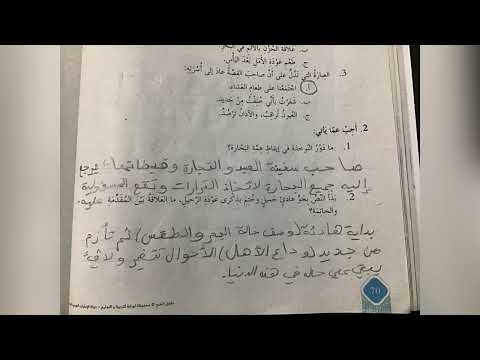 ب. علاقة الحُزْنِ بِالألَمِ في البَحْرِ.
ج. طَعْمِ عَوْدَةِ الأَمَلِ بَعْدَ اليَأْسِ.
3. العِبارَةُ الَّتي تَدُلُّ عَلى أَنَّ صاحِبَ القِصَّةِ عادَ إِلى أُسْرَتِهِ:
أ. اجْتَمَعْنا عَلى طَعامِ العَشاءِ.
ب. شَعَرْتُ بِأَنَّني خُلِقْتُ مِنْ جَديدٍ.
ج. العُيونُ تُراقِبُ، وَالآذانُ تَرْصُدُ.
2. أُجيبُ عَمّا يَأْتي:
1. ما دَوْرُ النّوخذة في إيقاظِ هِمَّةِ البَحّارَةِ؟
صاحب سفينة الصيد و التجارة و قبطانها يرجع
إليه جميع البحارة لاتخاذ القرارات و تقع المسؤولية عليه.
2. بَدَأَ النَّصُّ بِجَوٍّ هادِئٍ جَميلٍ وَخُتِمَ بِذِكْرى عَوْدَةِ الرَّحيلِ، ما العَلاقَةُ بَيْنَ المُقَدِّمَةِ
وَالخاتِمَةِ؟
بداية هادئة (وصف حالة اليم و الطقس) ثم تأزم
من جديد (وداع الأهل) الأحوال تتغير ولا شيء
يبقى على حاله في هذه الدنيا.
70